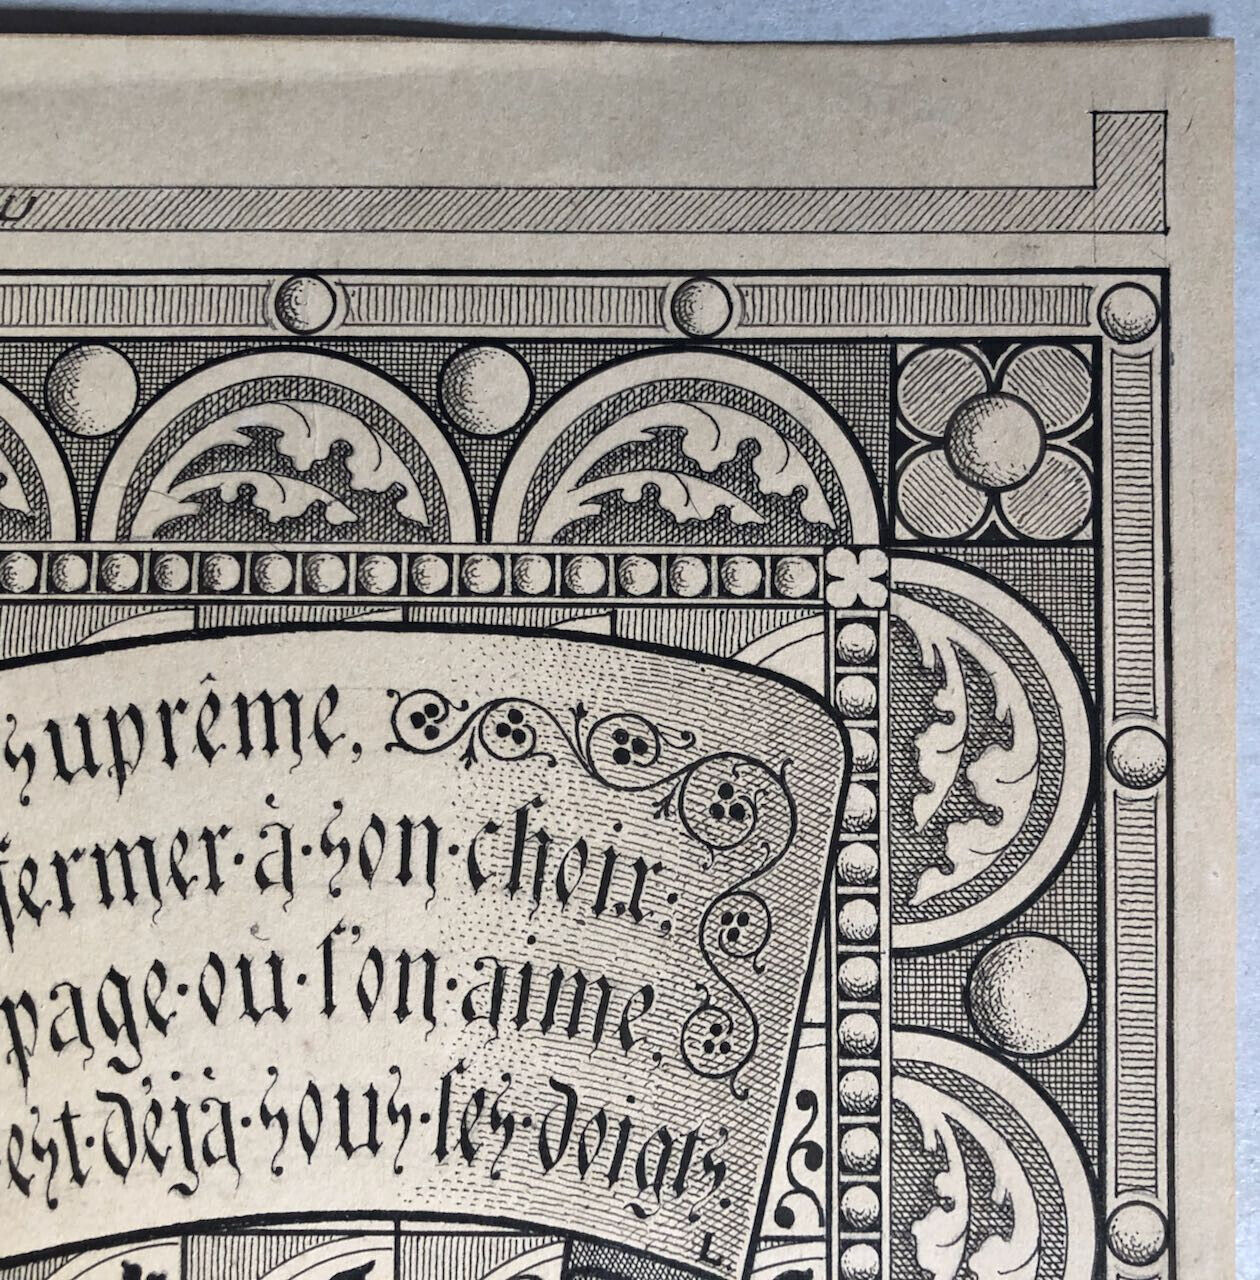 U
suprême,
fermer·à·son·choix:
page·où·l'on·aime,
est·déjà·sous·les·doigts.
L